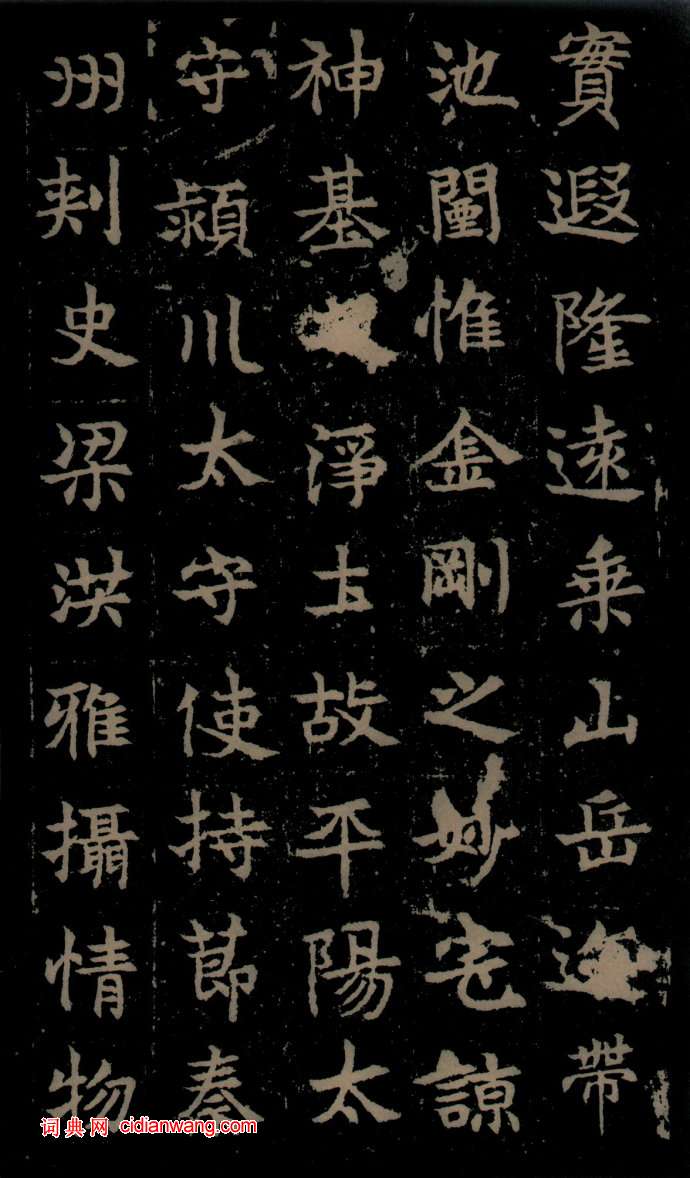 實遐隆遠乗山岳帶
池闉惟金剛之妙宅諒
神基淨土故平陽太
守潁川太守使持節秦
州刾史梁洪雅攝情物
词典网 cidianwang.com